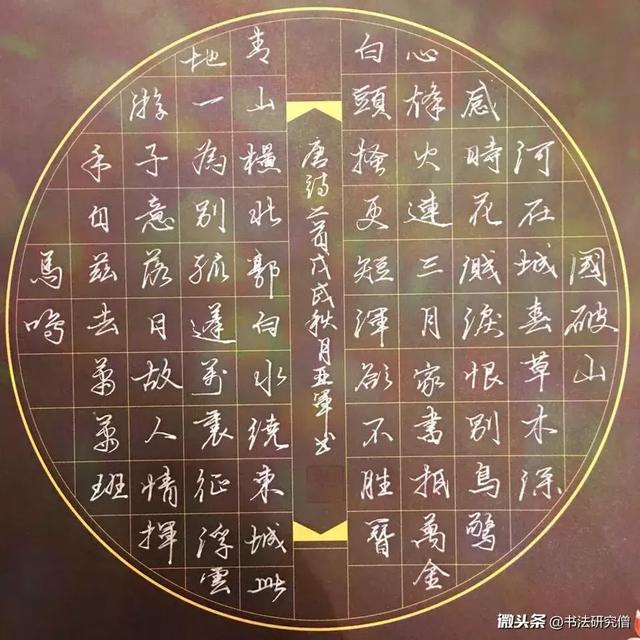 國破山
河在城春草木深
感時花濺淚恨別鳥驚
心烽火連三月家書抵萬金
白頭搔更短渾欲不勝簪
唐詩二首戊戌秋月亚軍书
青山橫北郭白水繞東城此
地一為別孤蓬萬裏征浮雲
游子意落日故人情揮
手自茲去蕭蕭班
馬鳴
微头条 @书法研究僧